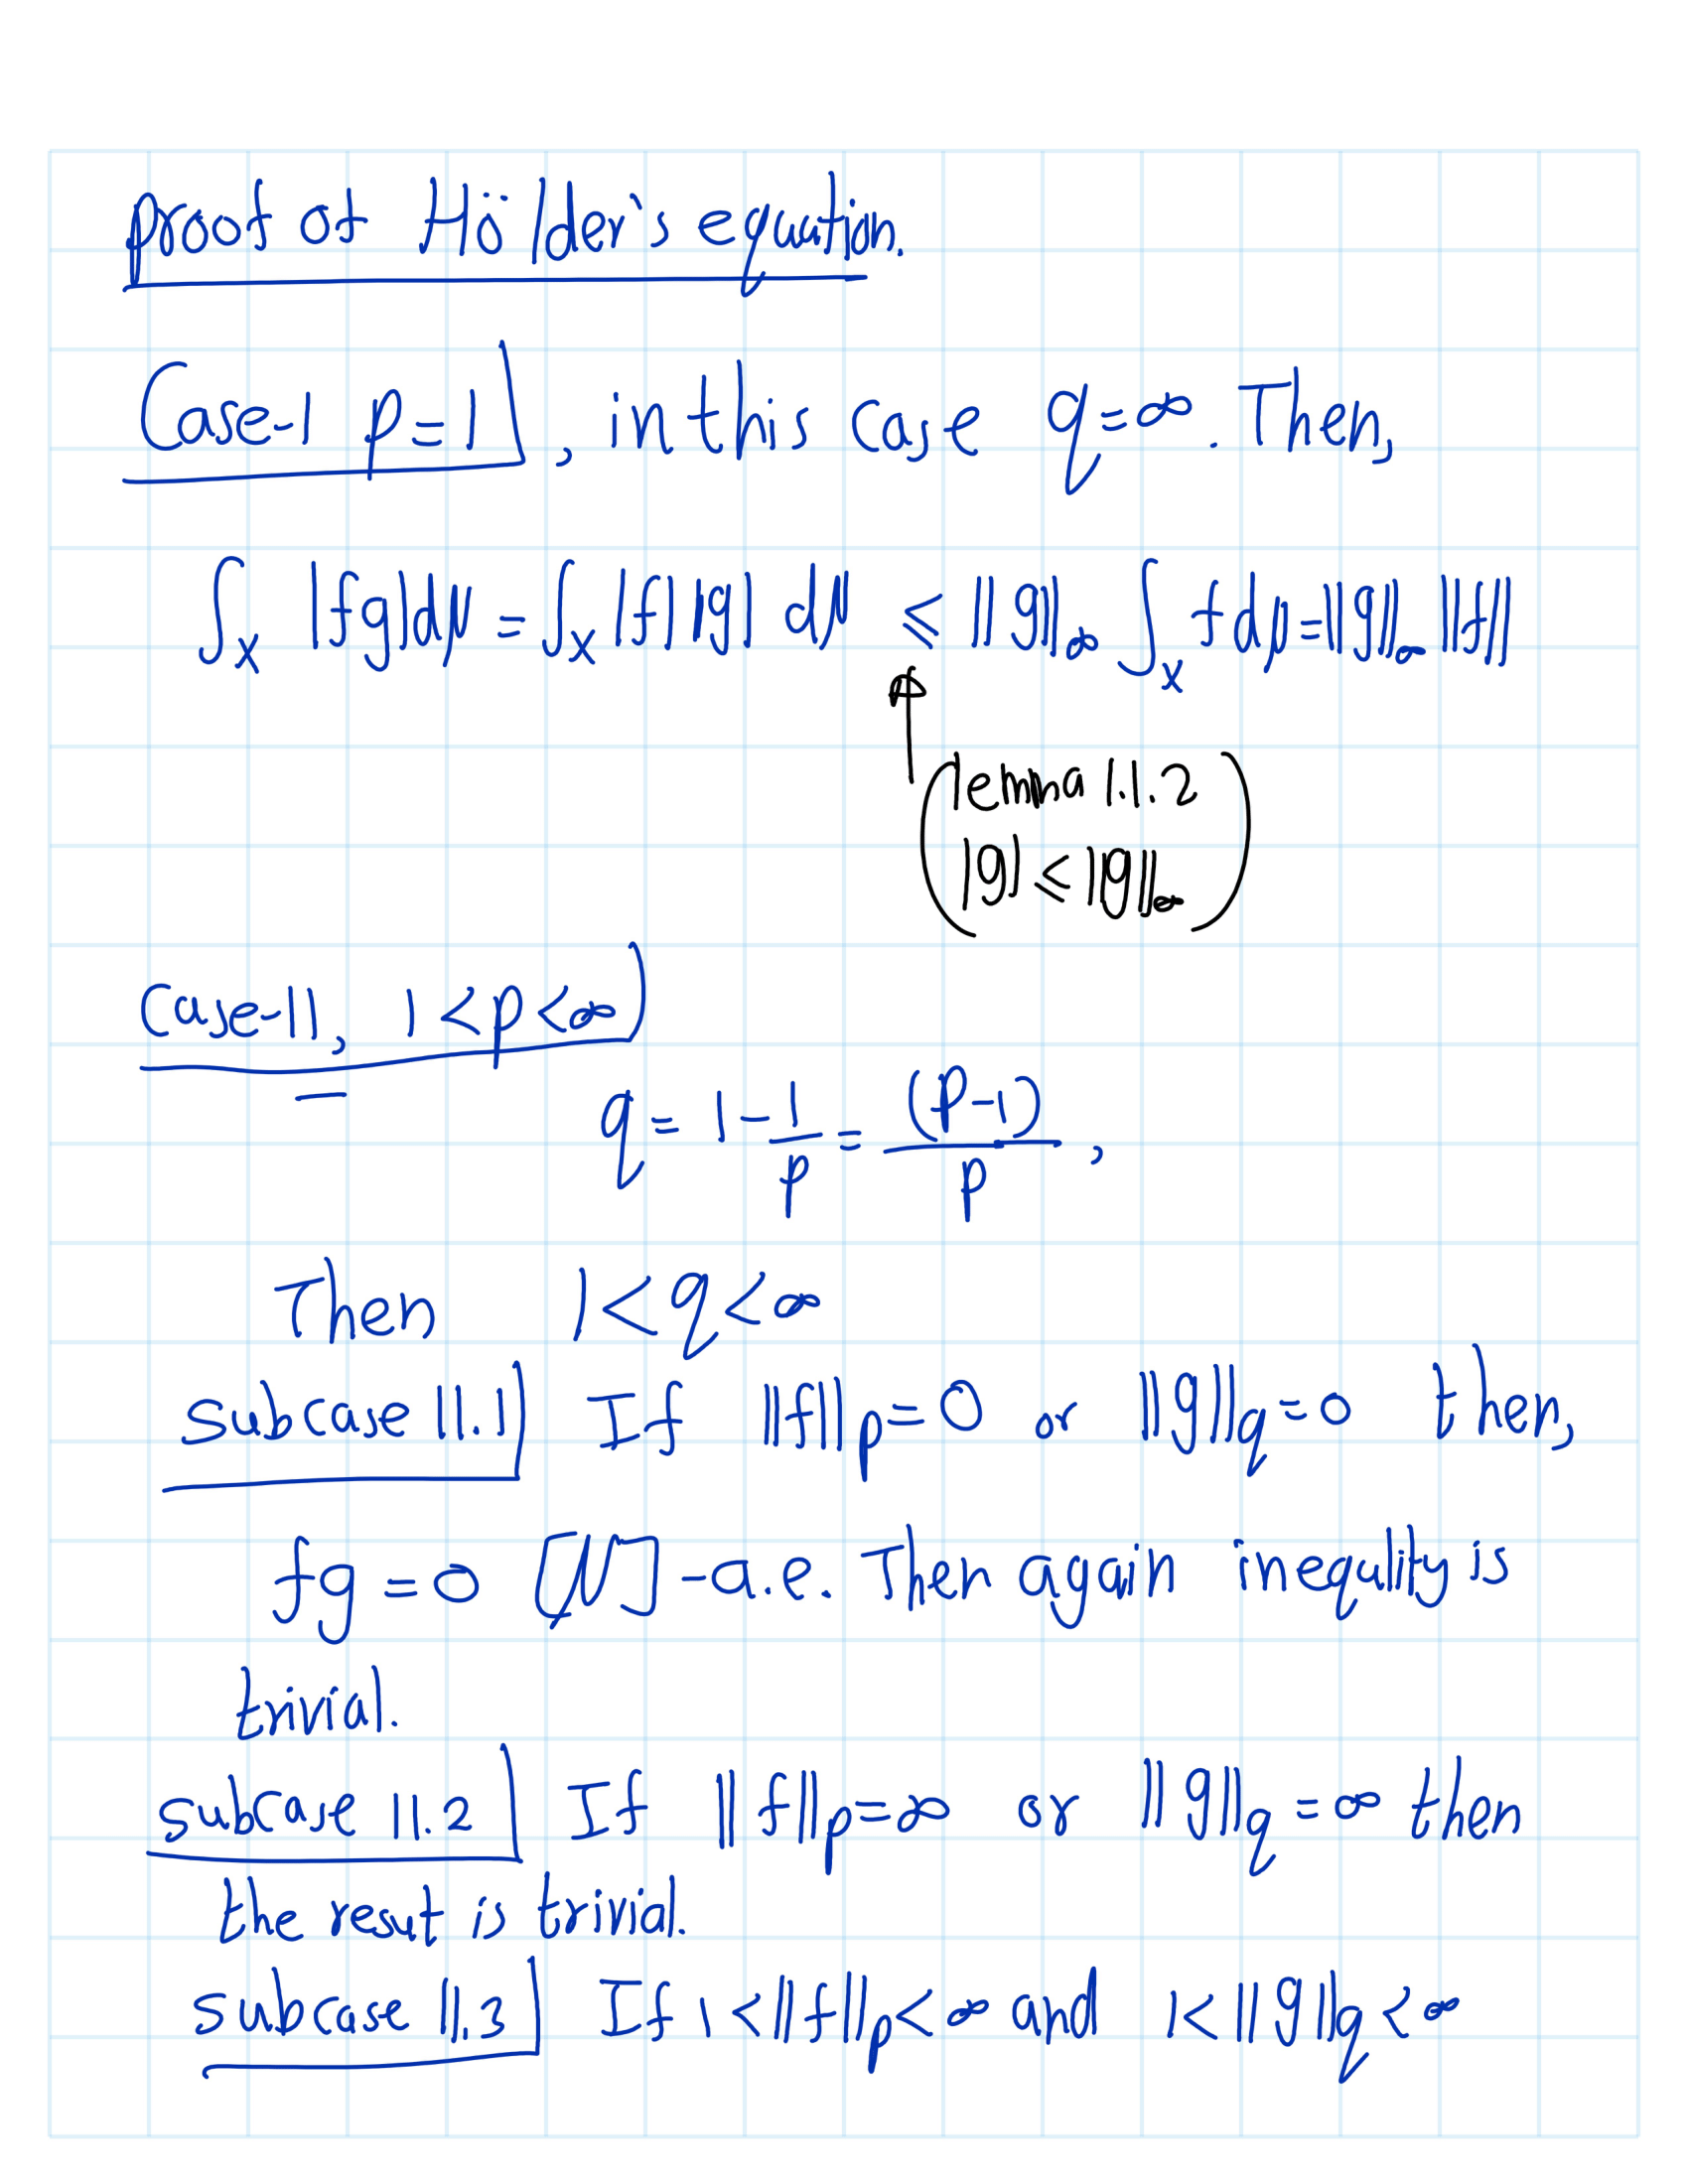 Proof of Hölder's equation.
Case-1 p=1, in this case q=∞. Then,
∫_X |fg|dμ = ∫_X |f| |g| dμ ≤ ||g||_∞ ∫_X f dμ = ||g||_∞ ||f||
(lemma 1.1.2
|g| ≤ ||g||_∞)
Case-11, 1<p<∞
q = 1 - 1/p = (p-1)/p ,
Then 1<q<∞
subcase 11.1 If ||f||_p=0 or ||g||_q=0 then,
fg=0 [μ]-a.e. Then again inequlity is
trivial.
subcase 11.2 If ||f||_p=∞ or ||g||_q=∞ then
the resut is trivial.
subcase 11.3 If 1<||f||_p<∞ and 1<||g||_q<∞